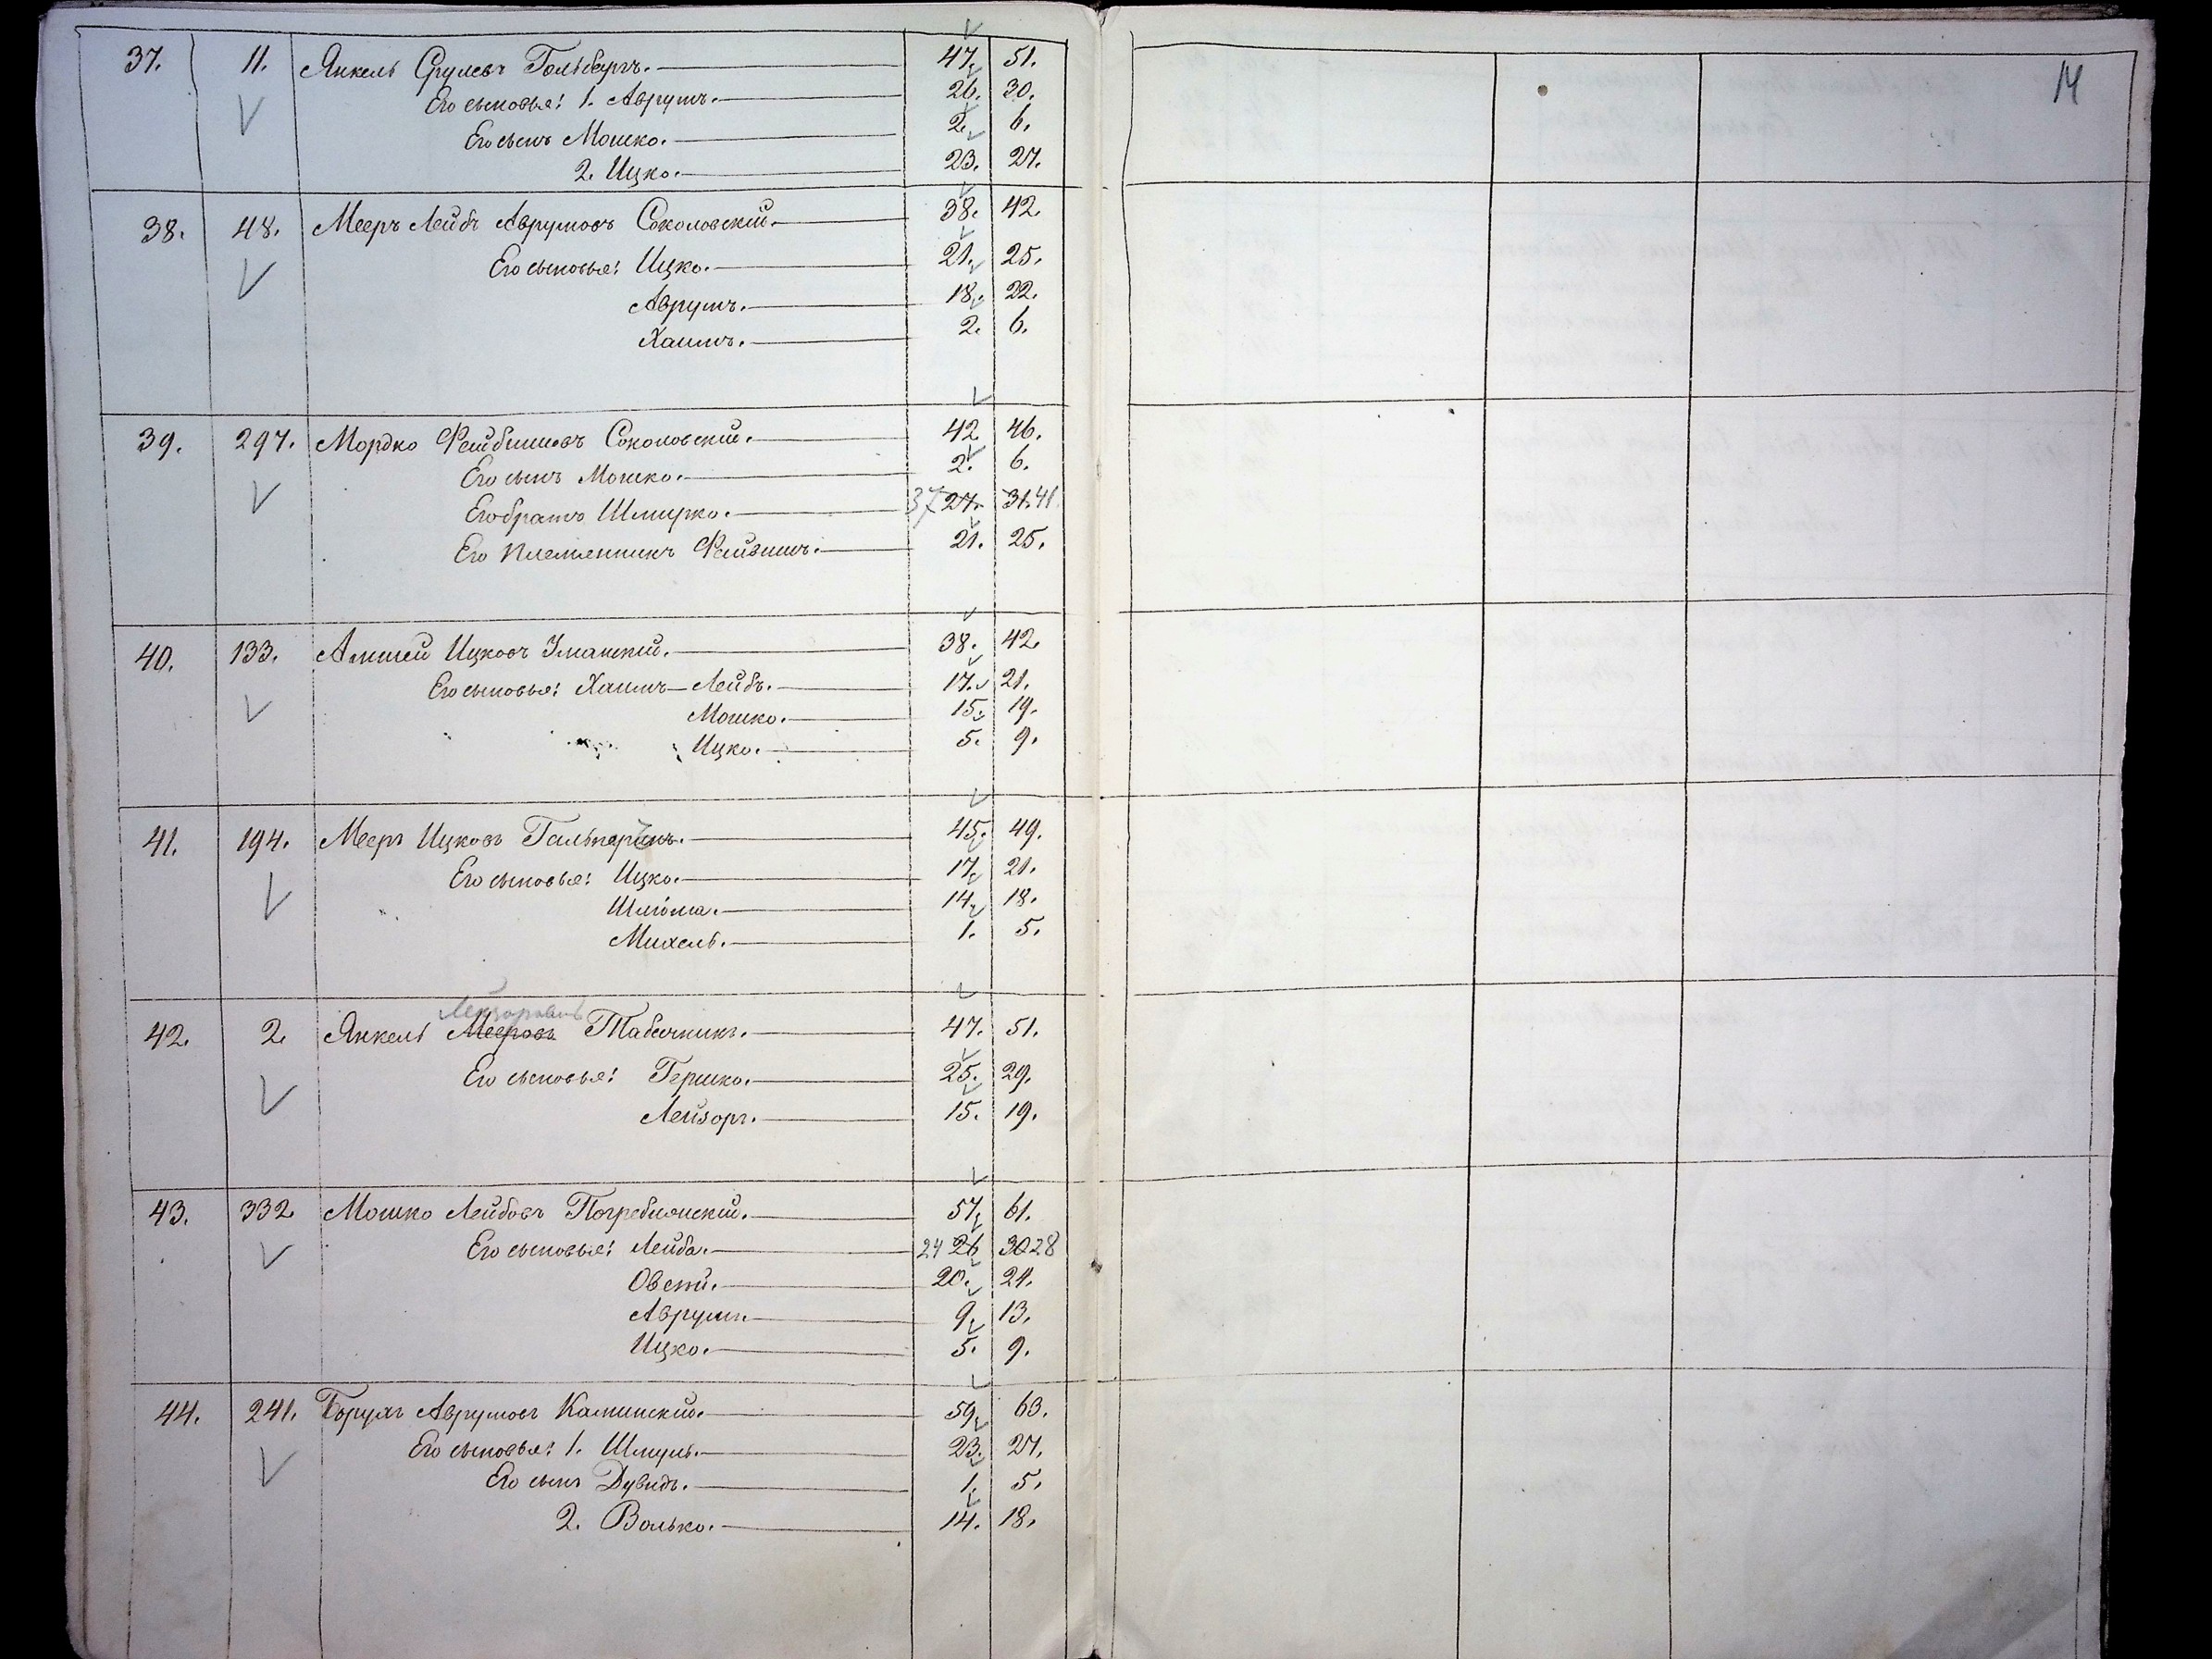 14
37. 11. Янкель Срулевъ Гольбергъ. 47. 51.
Его сыновья: 1. Аврумъ. 26. 30.
Его сынъ Мошко. 2. 6.
2. Ицко. 23. 27.
38. 48. Мееръ Лейбъ Аврумовъ Соколовскій. 38. 42.
Его сыновья: Ицко. 21. 25.
Аврумъ. 18. 22.
Хаимъ. 2. 6.
39. 297. Мордко Фейбишовъ Соколовскій. 42 46.
Его сынъ Мошко. 2. 6.
Его братъ Шмирко. 37 27. 31. 41
Его племянникъ Фейвишъ. 21. 25.
40. 133. Амшей Ицковъ Уманскій. 38. 42.
Его сыновья: Хаимъ-Лейбъ. 17. 21.
Мошко. 15. 19.
Ицко. 5. 9.
41. 194. Мееръ Ицковъ Гальперинъ. 45. 49.
Его сыновья: Ицко. 17. 21.
Шлйома. 14. 18.
Михель. 1. 5.
Лейзоровъ
42. 2. Янкель Мееровъ Табачникъ. 47. 51.
Его сыновья: Гершко. 25. 29.
Лейзоръ. 15. 19.
43. 332 Мошко Лейбовъ Погребинскій. 57. 61.
Его сыновья: Лейба. 24 26 30 28
Овсей. 20. 24.
Аврумъ 9. 13.
Ицко. 5. 9.
44. 241. Борухъ Аврумовъ Каминскій. 59. 63.
Его сыновья: 1. Шмуль. 23. 27.
Его сынъ Дувидъ. 1. 5.
2. Волько. 14. 18.